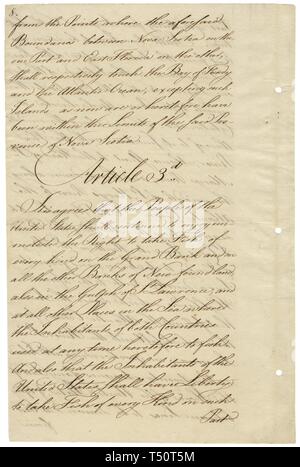 8.
from the Points where the aforesaid
Boundaries between Nova Scotia on the
one Part and East Florida on the other,
shall respectively touch the Bay of Fundy
and the Atlantic Ocean, excepting such
Islands as now are or heretofore have
been within the Limits of the said Pro
vince of Nova Scotia.
Article 3.d
It is agreed that the People of the
United States shall continue to enjoy un
molested the Right to take Fish of
every kind on the Grand Bank and on
all the other Banks of Newfoundland,
also in the Gulph of St. Lawrence, and
at all other Places in the Sea where
the Inhabitants of both Countries
used at any time heretofore to fish.
And also that the Inhabitants of the
United States shall have Liberty
to take Fish of every Kind on such
Part
alamy
T50T5M